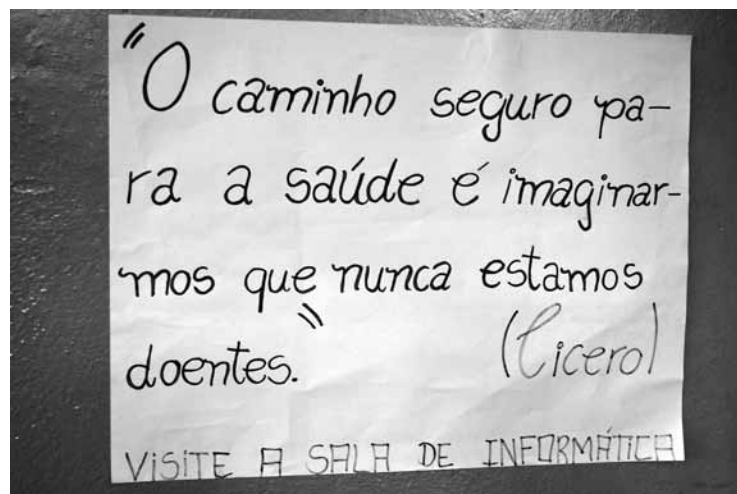 "O caminho seguro pa-
ra a saúde é imaginar-
mos que nunca estamos
doentes." (Cicero)
VISITE A SALA DE INFORMÁTICA